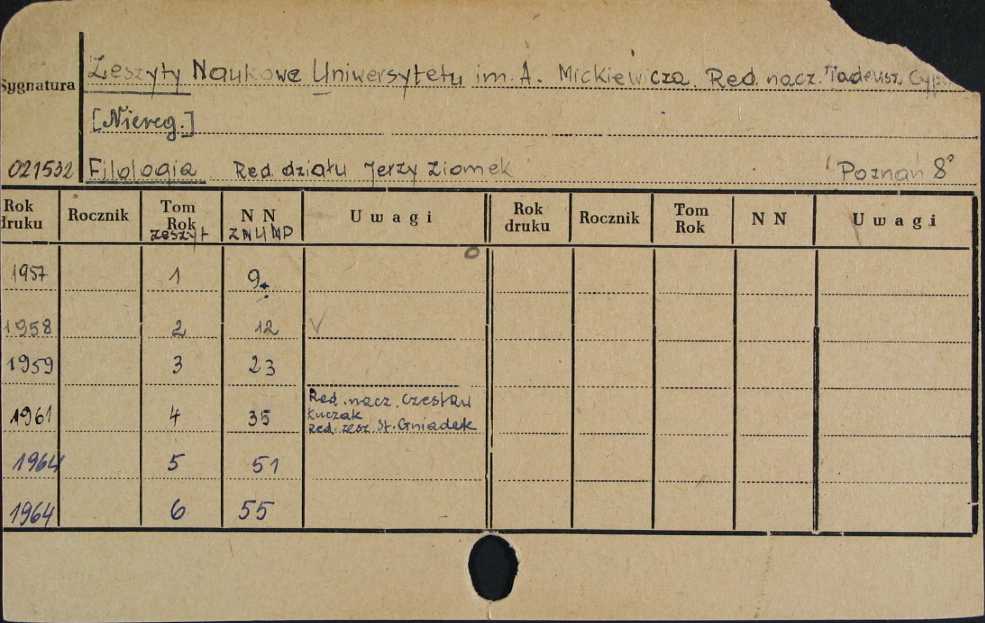 Zeszyty Naukowe Uniwersytetu im. A. Mickiewicza. Red. nacz. Tadeusz
Sygnatura
[Niereg.]
021532 Filologia Red. działu Jerzy Ziomek Poznań 8°
Rok druku Rocznik Tom Rok zeszyt N N ZNUMP Uwagi Rok druku Rocznik Tom Rok N N Uwagi
1957 1 9.
1958 2 12 V
1959 3 23
1961 4 35 Red. nacz. Czesław
Łuczak
Red. zesz. St. Gniadek
1964 5 51
1964 6 55